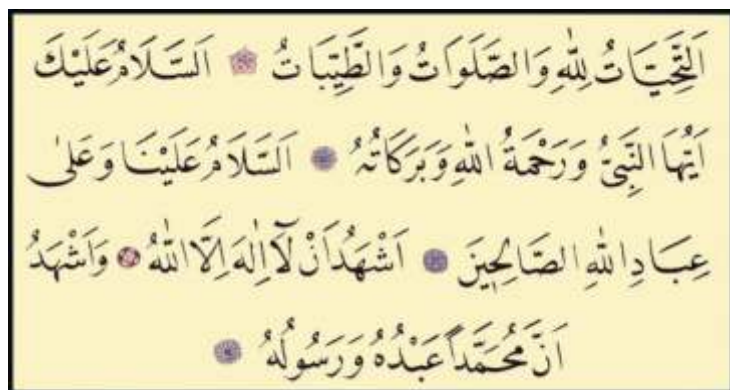 اَلتَّحِيَّاتُ لِلّٰهِ وَالصَّلَوَاتُ وَالطَّيِّبَاتُ اَلسَّلَامُ عَلَيْكَ
اَيُّهَا النَّبِيُّ وَرَحْمَةُ اللّٰهِ وَبَرَكَاتُهُ اَلسَّلَامُ عَلَيْنَا وَعَلٰى
عِبَادِ اللّٰهِ الصَّالِحِينَ اَشْهَدُ اَنْ لَٓا اِلٰهَ اِلَّا اللّٰهُ وَاَشْهَدُ
اَنَّ مُحَمَّداً عَبْدُهُ وَرَسُولُهُ